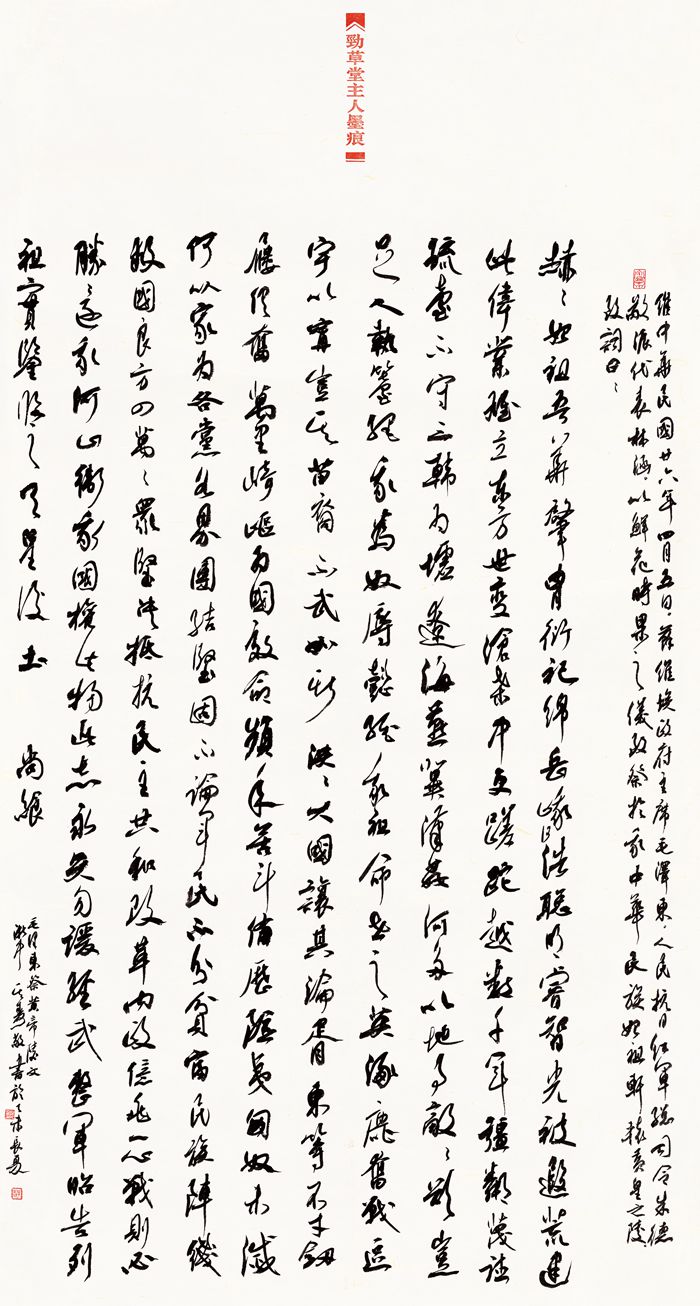 勁草堂主人墨痕
維中華民國廿六年四月五日蘇維埃政府主席毛澤東人民抗日紅軍總司令朱德
敬派代表林涵以鮮花時果之儀致祭於我中華民族始祖軒轅黃皇之陵
致詞曰
赫〻始祖吾華肇冑衍祀綿岳峨浩聰明睿智光被遐荒建
此偉業雄立東方世變滄桑中更蹉跎越數千年疆鄰蔑德
琉臺不守三韓為墟遼海燕冀漢奸何多以地事敵〻欲豈
足人執笞繩我為奴辱懿維我祖命世之英涿鹿奮戰區
宇以寧豈其苗裔不武如斯泱〻大國讓其淪胥東等不才劍
屨俱奮萬里崎嶇為國效命頻年苦斗備歷險夷匈奴未滅
何以家為各黨各界團結堅固不論軍民不分貧富民族陣線
救國良方四萬〻眾堅決抵抗民主共和改革內政億兆一心戰則必
勝還我河山衛我國權此物此志永矢勿諼經武整軍昭告列
祖實鑒臨之皇天後土 尚饗
毛澤東祭黃帝陵文
敬書於乙未長夏